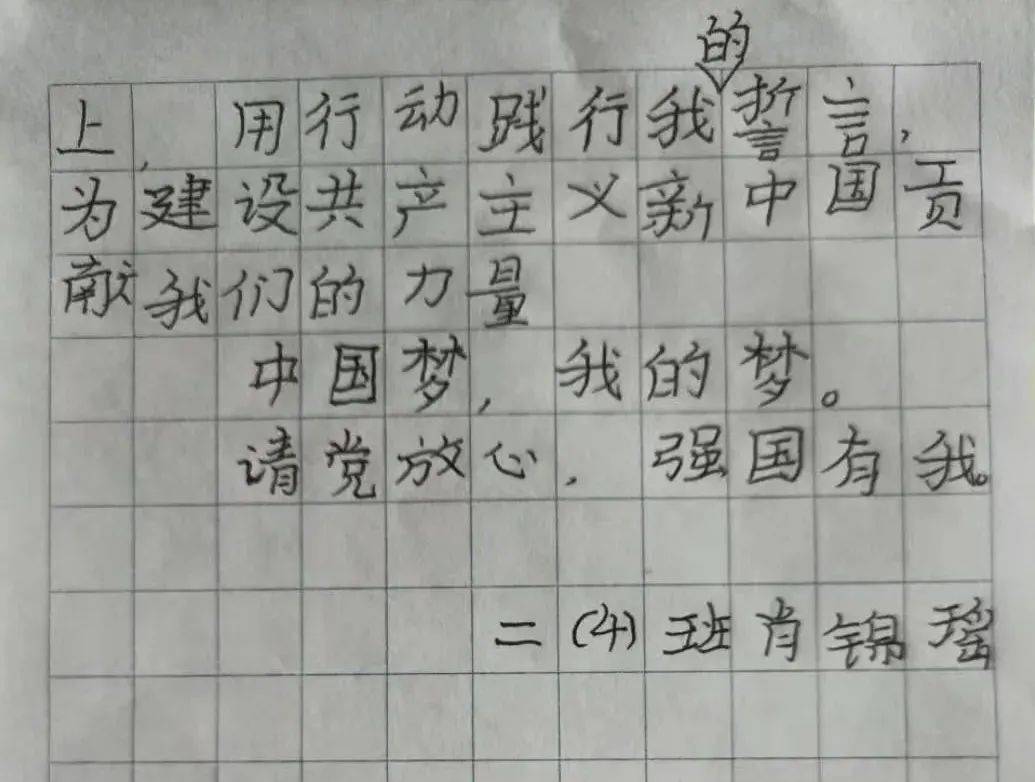 的
上,用行动践行我誓言,
为建设共产主义新中国贡
献我们的力量
中国梦,我的梦。
请党放心,强国有我。
二(4)班肖锦瑶